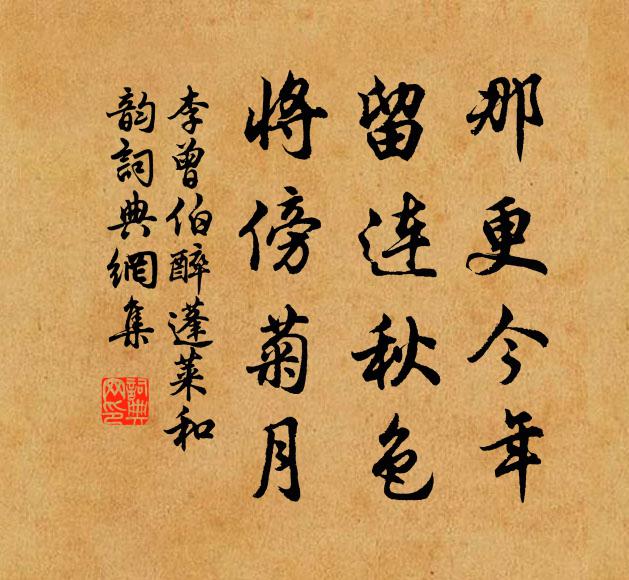 那更今年
留连秋色
将傍菊月
李曾伯醉蓬莱和
韵詞典網集
詞典
网印